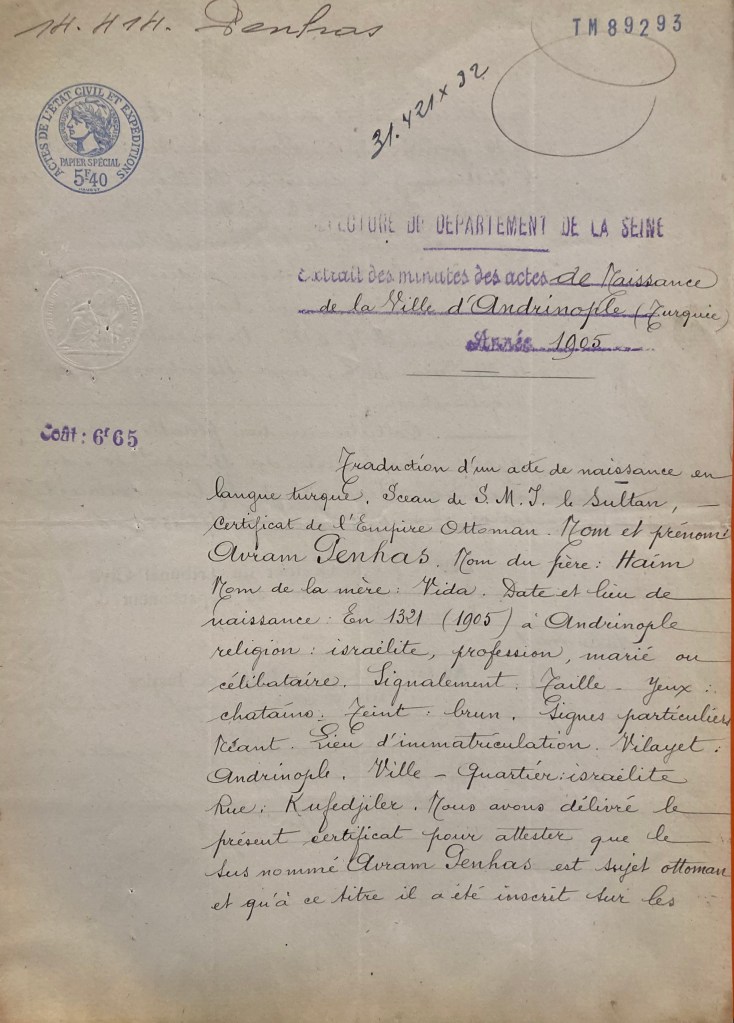 14.414. Penhas
TM89293
31.421 x 32
ACTES DE L'ÉTAT CIVIL ET EXPÉDITIONS
PAPIER SPÉCIAL
5F40
FECTURE DU DÉPARTEMENT DE LA SEINE
Extrait des minutes des actes de Naissance
de la Ville d'Andrinople (Turquie)
Année 1905
Coût : 6f65
Traduction d'un acte de naissance en
langue turque. Sceau de S. M. I. le Sultan, —
Certificat de l'Empire Ottoman. Nom et prénom
Avram Penhas. Nom du père : Haïm
Nom de la mère : Vida. Date et lieu de
naissance : En 1321 (1905) à Andrinople
religion : israélite, profession, marié ou
célibataire. Signalement. Taille — Yeux :
chatains. Teint : brun. Signes particuliers
Néant. Lieu d'immatriculation. Vilayet :
Andrinople. Ville — Quartier : israélite
Rue : Kufedjiler. Nous avons délivré le
présent certificat pour attester que le
sus nommé Avram Penhas est sujet ottoman
et qu'à ce titre il a été inscrit sur les